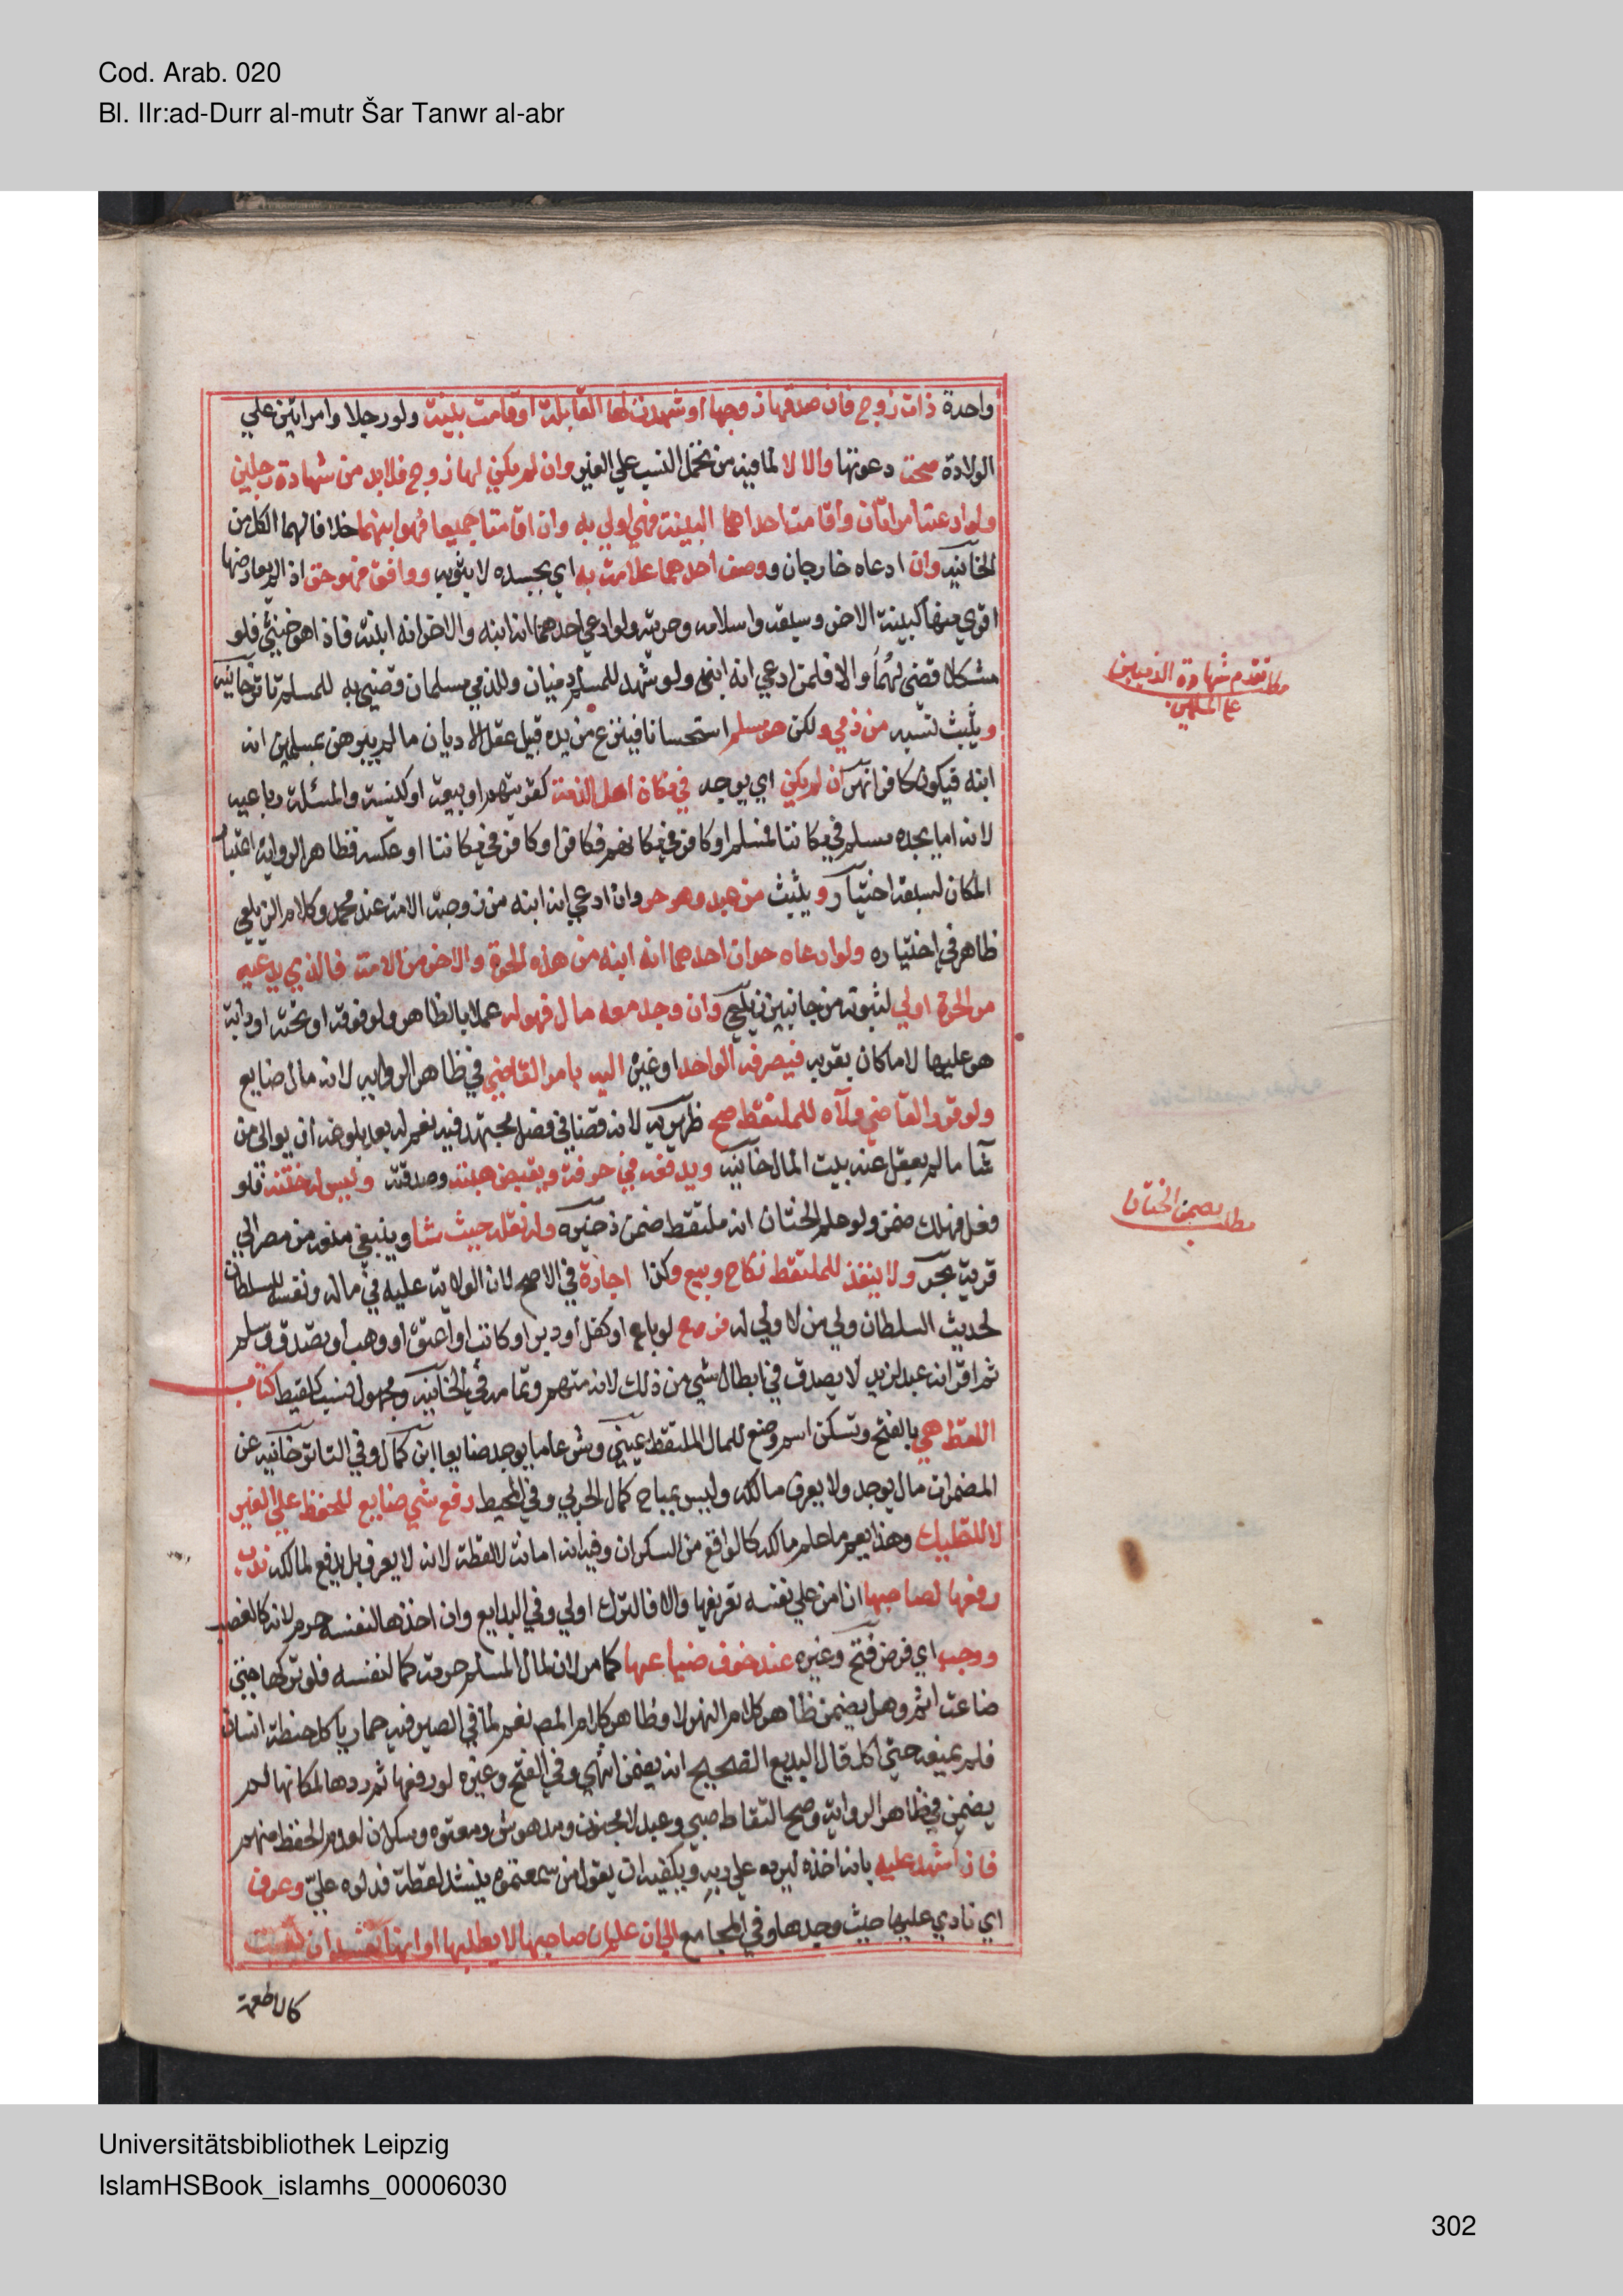 Cod. Arab. 020
Bl. IIr:ad-Durr al-mutr Šar Tanwr al-abr
واحدة ذات زوج فان صدقها زوجها او شهدت لها القابلة او قامت بينة ولو رجلا وامراتين علي
الولادة صحت دعوتها والا لا لما فيه من تحمل النسب علي الغير وان لم يكن لها زوج فلابد من شهادة رجلين
ولو ادعته امراتان واقامت احداهما البينة فهي اولي به وان اقامتا جميعا فهو ابنهما خلافا لهما الكل من
الخانية وان ادعاه خارجان ووصف احدهما علامة به اي بجسده لا بثوبه ووافق فهو احق اذا لم يعارضها
اقوي منها كبينة الاخر وسبقه واسلامه وحريته ولو ادعي احدهما انه ابنه والاخر انه ابنته فاذا هو خنثي فلو
مشكلا قضي لهما والا فلمن ادعي انه ابنه ولو شهد للمسلم ذميان وللذمي مسلمان قضي به للمسلم تاترخانيه
ويثبت نسبه من ذمي ولكن هو مسلم استحسانا فينزع من يده قبيل عقل الاديان ما لم يبرهن بمسلمين انه
ابنه فيكون كافرا نهر ان لم يكن اي يوجد في مكان اهل الذمة كقريتهم او بيعة او كنيسة والمسئلة رباعيه
لانه اما يجده مسلم في مكاننا فمسلم او كافر في مكانهم فكافر او كافر في مكاننا او عكسه فظاهر الرواية اعتبار
المكان لسبقه اختيار ويثبت من عبد وهو حر وان ادعي انه ابنه من زوجته الامة عند محمد وكلام الزيلعي
ظاهر في اختياره ولو ادعاه حران احدهما انه ابنه من هذه الحرة والاخر من الامة فالذي يدعيه
من الحرة اولي لثبوته من جانبين زيلعي وان وجد معه مال فهو له عملا بالظاهر ولو فوقه او تحته او دابة
هو عليها لا ما كان بقربه فيصرفه الواحد او غيره اليه بامر القاضي في ظاهر الروايه لانه مال ضايع
ولو قرر القاضي ولاه للملتقط صح ظهيريه لانه قضا في فصل مجتهد فيه نعم له بعد بلوغه ان يوالي من
شا ما لم يعقل عنه بيت المال خانيه ويدفعه في حرفة ويقبض هبته وصدقته وليس له ختنه فلو
فعل فهلك ضمن ولو علم الختان انه ملتقط ضمن ذخيره وله نقله حيث شا وينبغي منعه من مصر الي
قرية بحر ولا ينفذ للملتقط نكاح وبيع وكذا اجارة في الاصح لان الولاية عليه في ماله ونفسه للسلطان
لحديث السلطان ولي من لا ولي له فرع لو باع او كفل او دبر او كاتب او اعتق او وهب او تصدق وسلم
ثم اقر انه عبد لزيد لا يصدق في ابطال شي من ذلك لانه متهم وتمامه في الخانيه ومجهول نسب كلقيط كتاب
اللقطه هي بالفتح وتسكن اسم وضع للمال الملتقط عيني وشرعا ما يوجد ضايعا ابن كمال وفي التاترخانيه عن
المضمرات مال يوجد ولا يعرف مالكه وليس بمباح كمال الحربي وفي المحيط رفع شي ضايع للحفظ علي الغير
لا للتمليك وهذا يعم ما علم مالكه كالواقع من السكران وفيه انه امانة لا لقطة لانه لا يعرف بل يدفع لمالكه ندب
رفعها لصاحبها ان امن علي نفسه تعريفها والا فالترك اولي وفي البدايع وان اخذها لنفسه حرم لانه كالغصب
ووجب اي فرض فتح وغيره عند خوف ضياعها كما مر لان لمال المسلم حرمة كما لنفسه فلو تركها حتي
ضاعت اثم وهل يضمن ظاهر كلام النهر لا وظاهر كلام المصنف نعم لما في الصيرفيه حمار ياكل حنطة انسان
فلم يمنعه حتي اكل قال البديع الصحيح انه يضمن انتهي وفي الفتح وغيره لو رفعها ثم ردها لمكانها لم
يضمن في ظاهر الرواية وصح التقاط صبي وعبد لا مجنون ومدهوش ومعتوه وسكران لعدم الحفظ منهم
فان اشهد عليه بانه اخذه ليرده علي ربه ويكفيه ان يقول من سمعتموه ينشد لقطة فدلوه علي وعرف
اي نادي عليها حيث وجدها وفي المجامع الي ان علم ان صاحبها لا يطلبها او انها تفسد ان بقيت
كالاطعمة
مطلب تقدم شهادة الذميين
علي المسلمين
مطلب يضمن الختان
Universitätsbibliothek Leipzig
IslamHSBook_islamhs_00006030
302